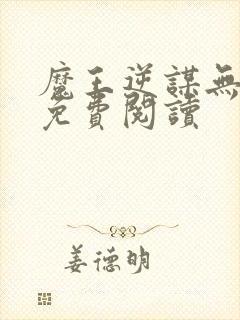 魔王逆謀無
免費閱讀
姜德明